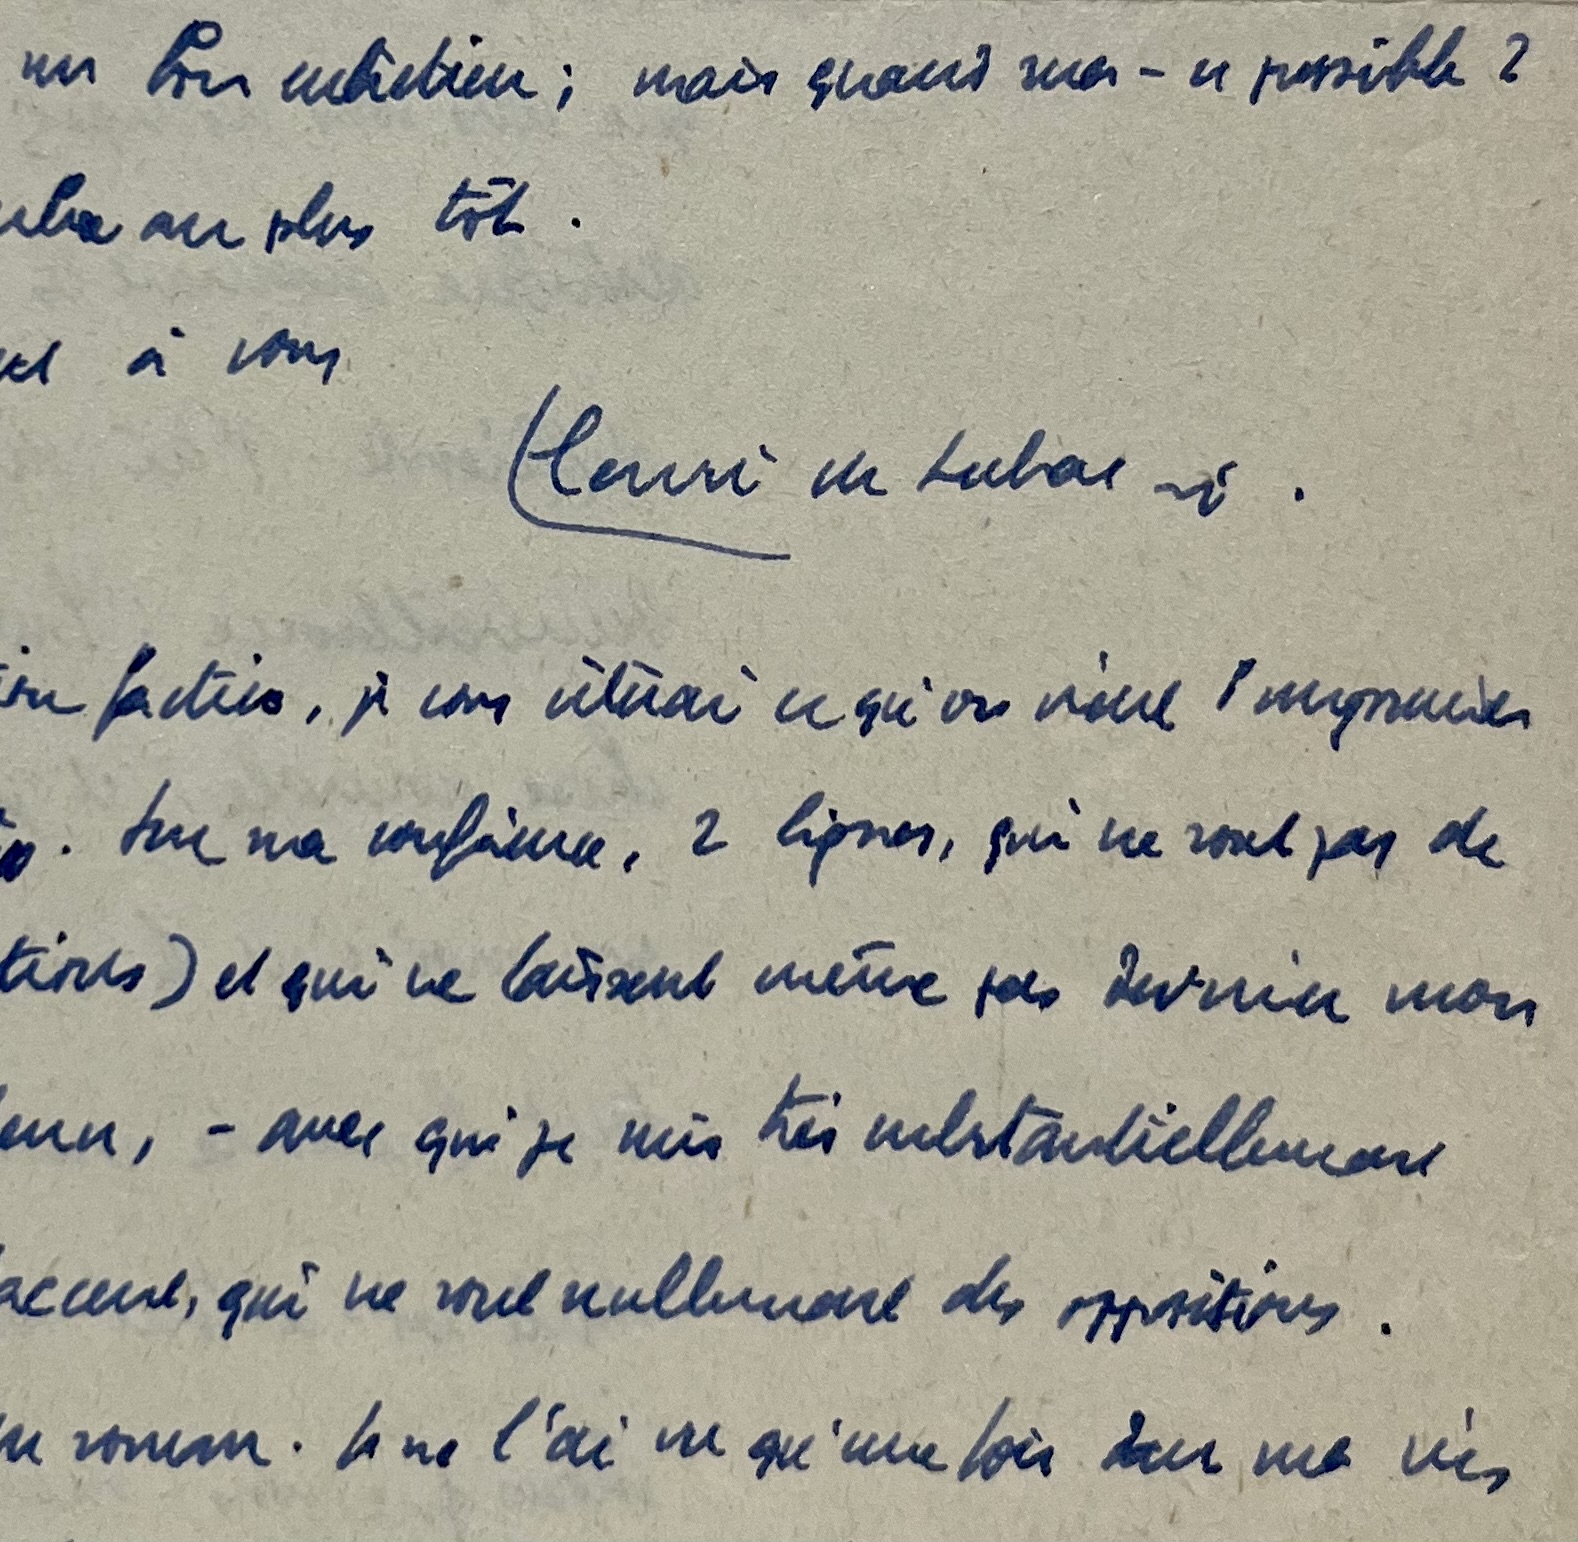 un bon entretien ; mais quand sera-ce possible ?
au plus tôt .
à vous
Henri de Lubac s.j .
factice, je vous citerai ce qu'on vient
. Sur ma conférence, 2 lignes, qui ne sont pas de
tions) et qui ne laissent même pas deviner mon
- avec qui je suis très substantiellement
accent, qui ne sont nullement des oppositions .
roman . Je ne l'ai vu qu'une fois dans ma vie